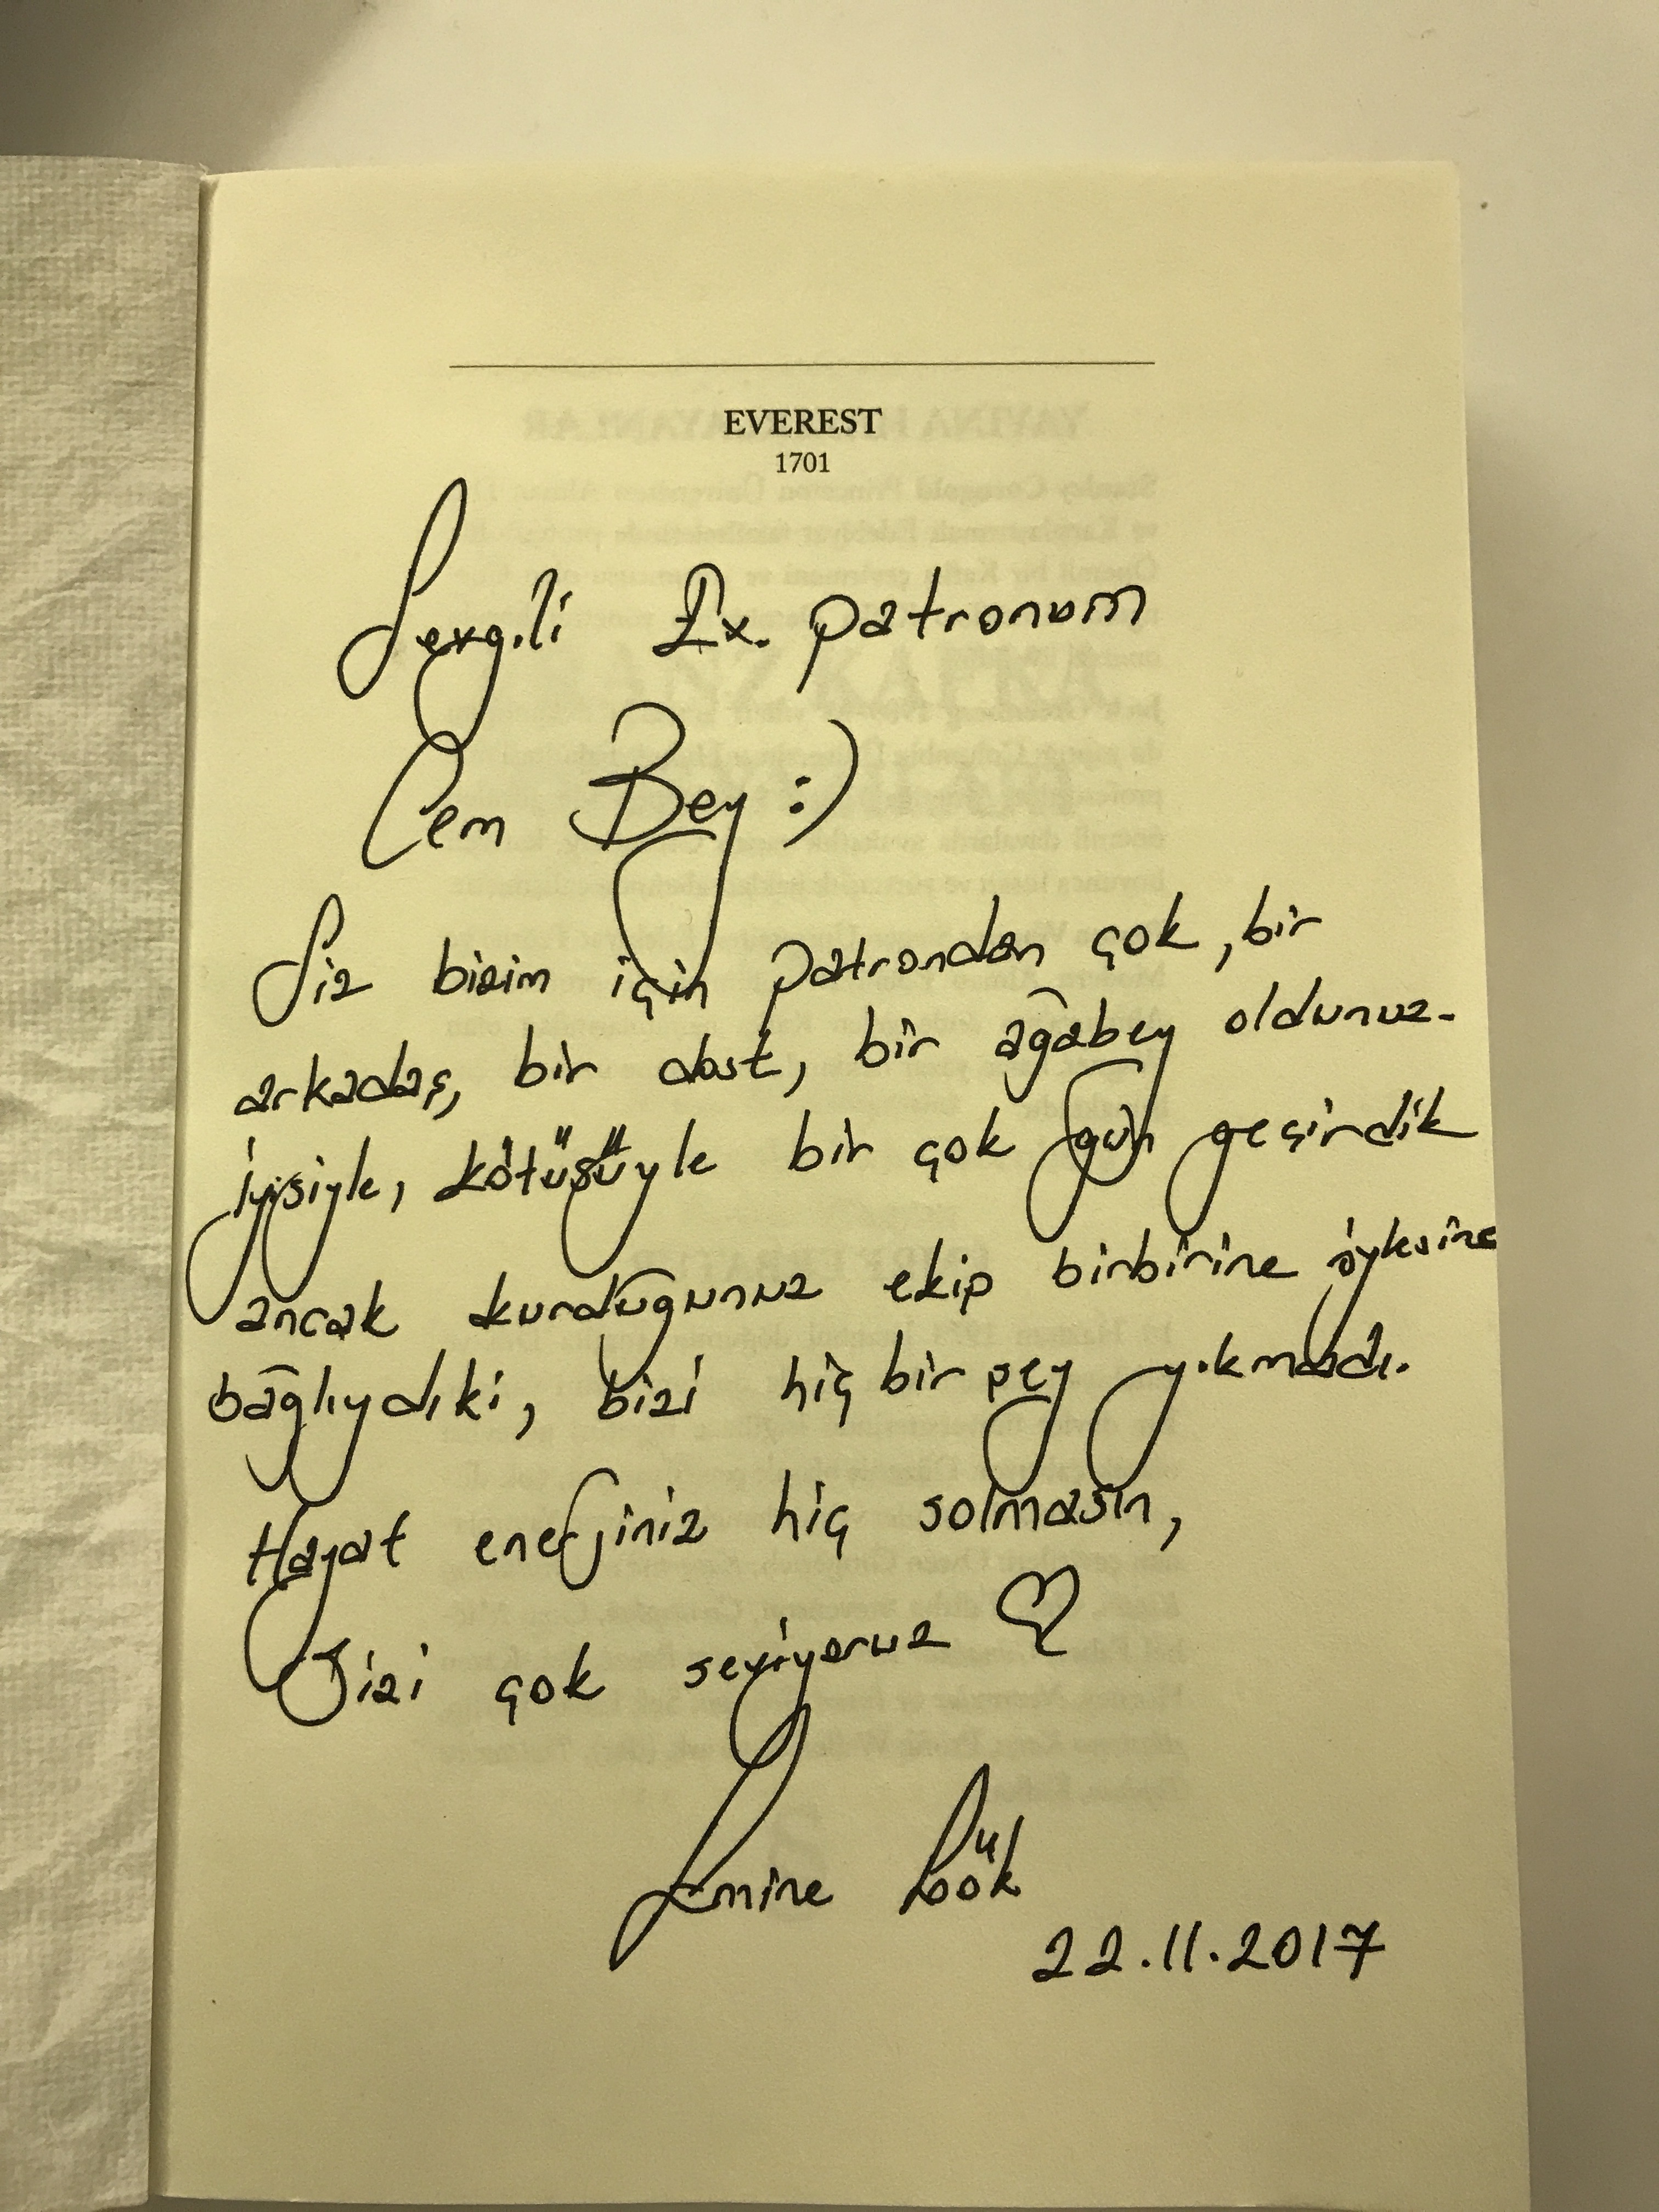 EVEREST
1701
Sevgili Ex. patronum
Cem Bey :)
Siz bizim için patrondan çok, bir
arkadaş, bir dost, bir ağabey oldunuz.
İyisiyle, kötüsüyle bir çok gün geçirdik
ancak kurduğunuz ekip birbirine öylesine
bağlıydıki, bizi hiç bir şey yıkmadı.
Hayat enerjiniz hiç solmasın,
Sizi çok seviyoruz ♡
Emine
22.11.2017